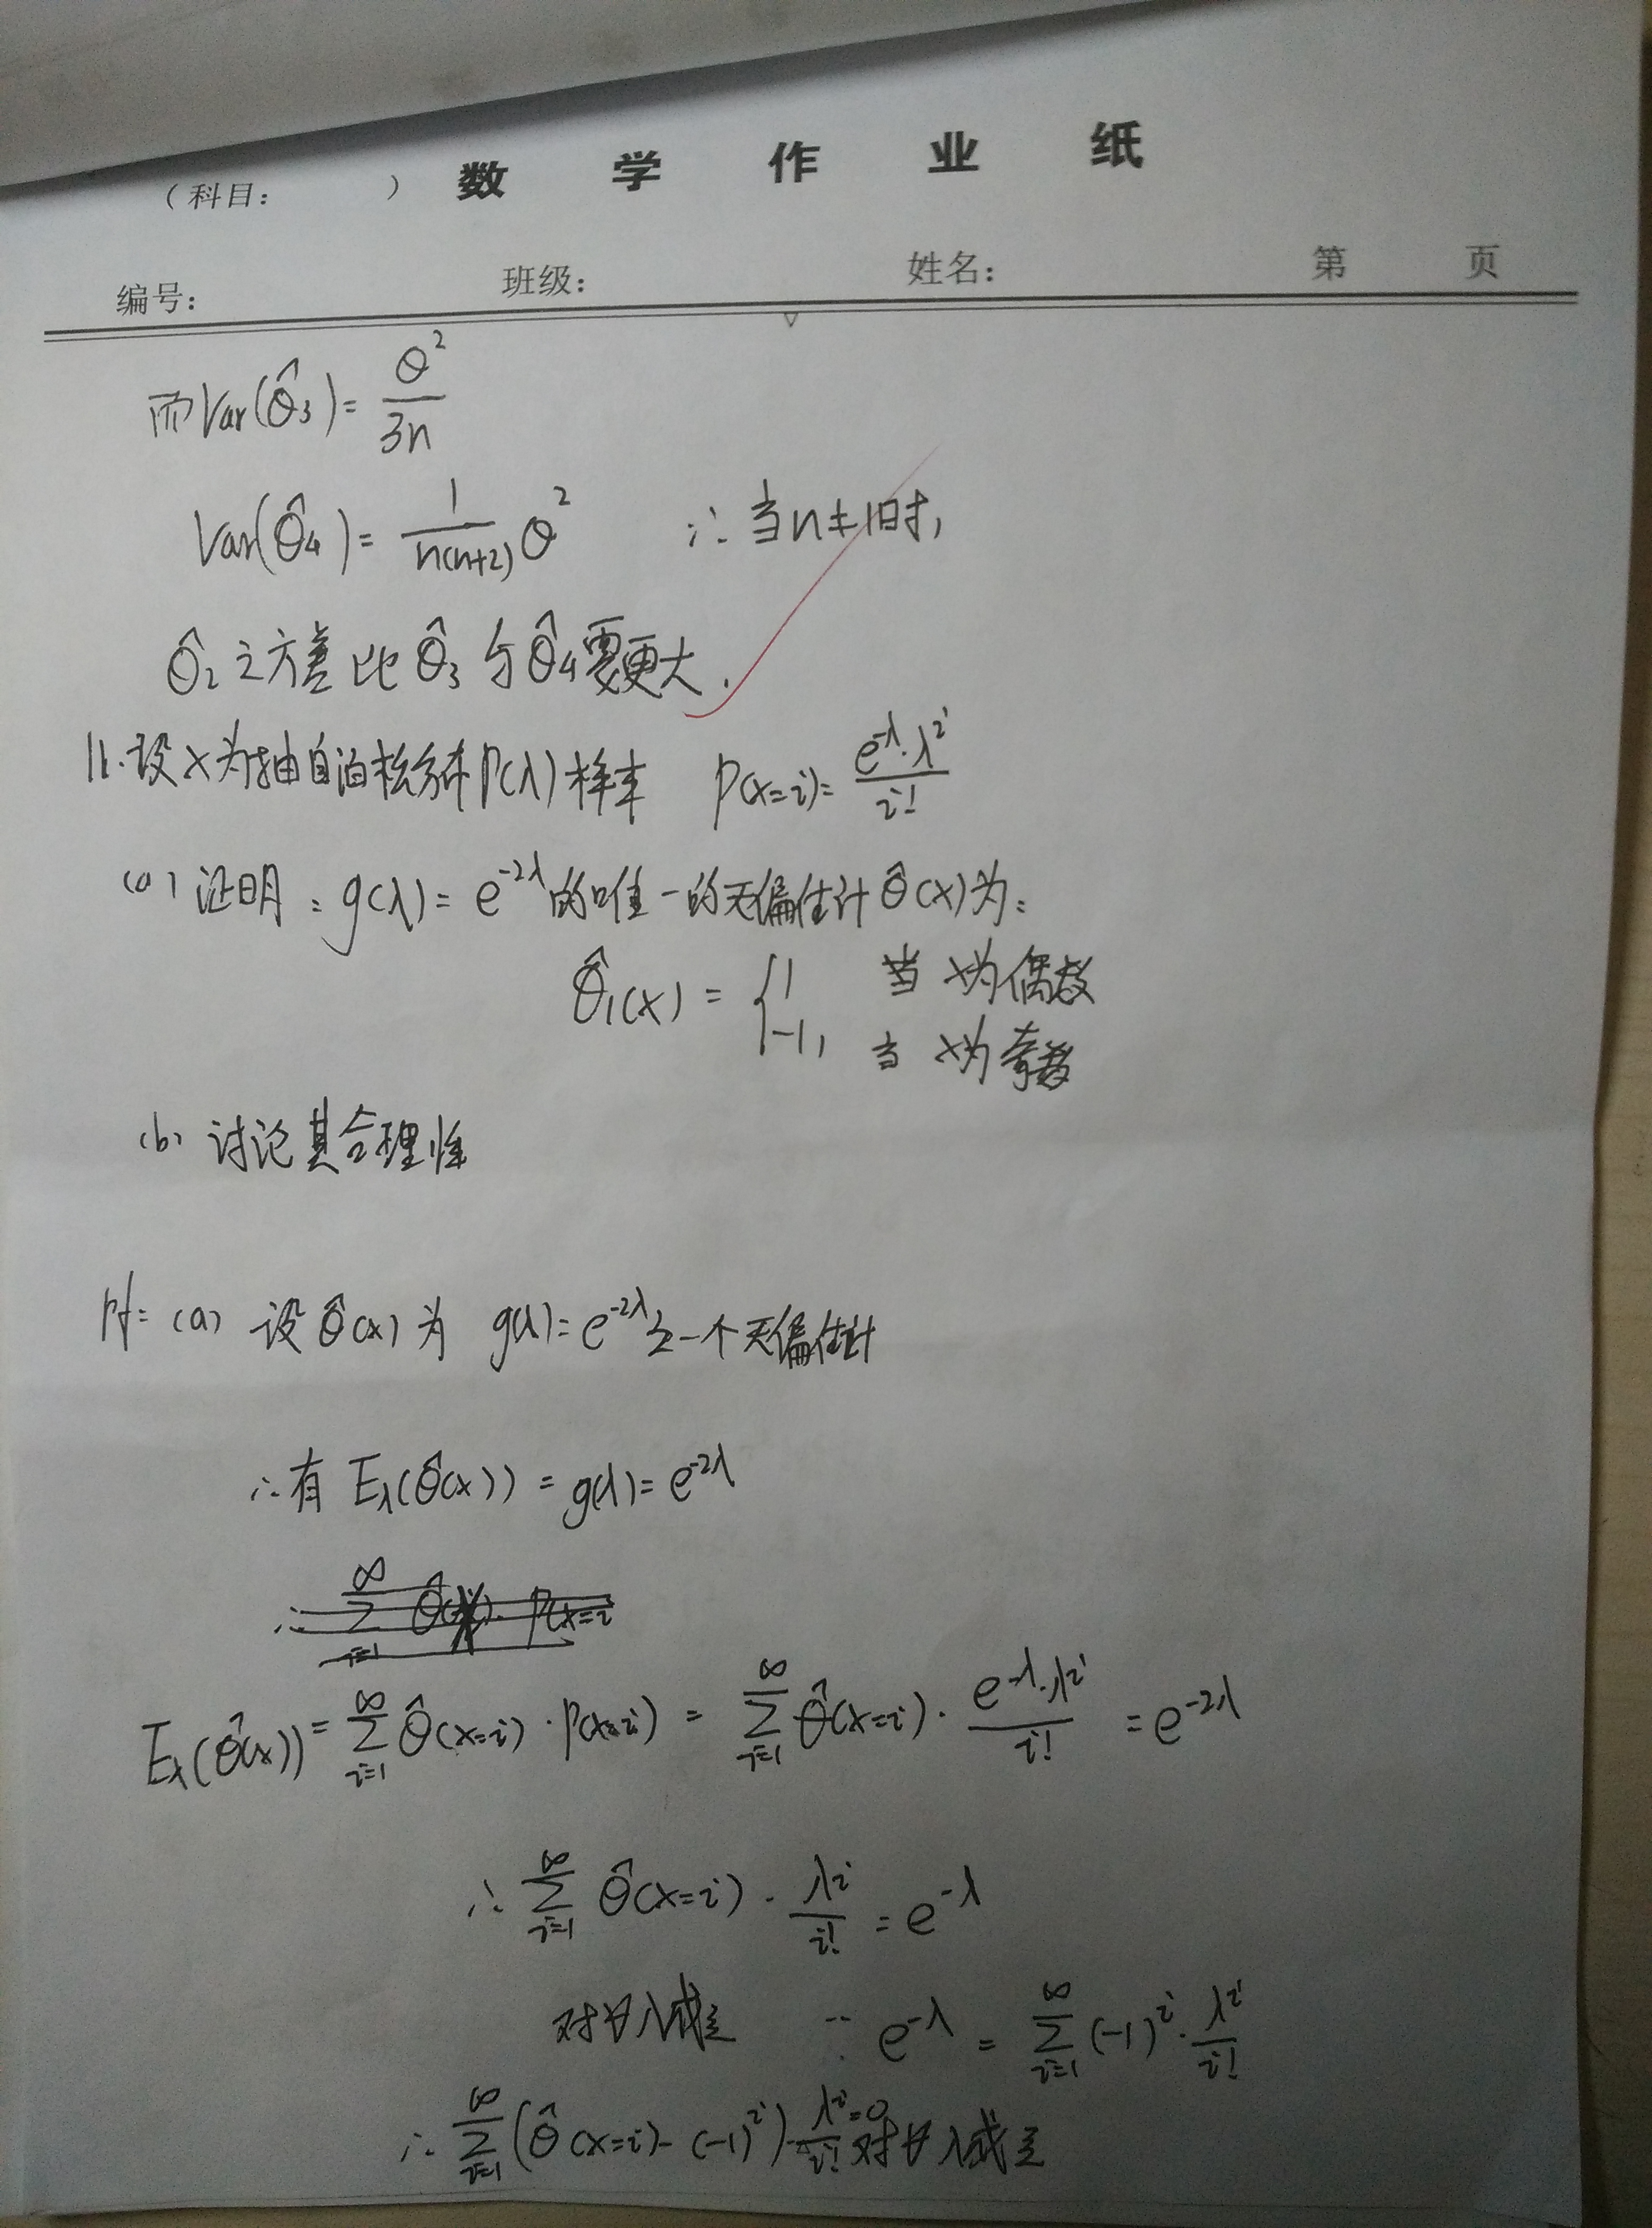 (科目: ) 数学作业纸
编号: 班级: 姓名: 第 页
而Var(θ̂₃)= θ²/3n
Var(θ̂₄)= 1/n(n+2) θ² ∴当n≠1时,
θ̂₂之方差比θ̂₃与θ̂₄要更大.
11.设X为抽自泊松分布P(λ)样本 P(X=i)= e^-λ·λ^i / i!
(a) 证明: g(λ)= e^-2λ的唯一的无偏估计θ̂(X)为:
θ̂₁(X) = { 1 当X为偶数
-1, 当X为奇数
(b) 讨论其合理性
Pf: (a) 设θ̂(X)为 g(λ)=e^-2λ之一个无偏估计
∴有 Eλ(θ̂(X)) = g(λ)= e^-2λ
∴ ∞Σi=1 θ̂(X)· P(X=i
Eλ(θ̂(X)) = ∞Σi=1 θ̂(X=i)·P(X=i) = ∞Σi=1 θ̂(X=i)· e^-λ·λ^i / i! = e^-2λ
∴ ∞Σi=1 θ̂(X=i)· λ^i / i! = e^-λ
对∀λ成立 ∵ e^-λ = ∞Σi=1 (-1)^i· λ^i / i!
∴ ∞Σi=1 (θ̂(X=i)-(-1)^i)· λ^i / i! =0 对∀λ成立